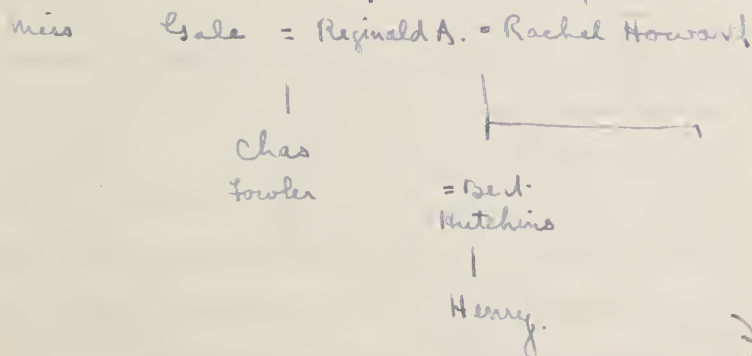 Miss Gale = Reginald A. = Rachel Howarth
Chas
Fowler
= Bert.
Hutchins
Henry.